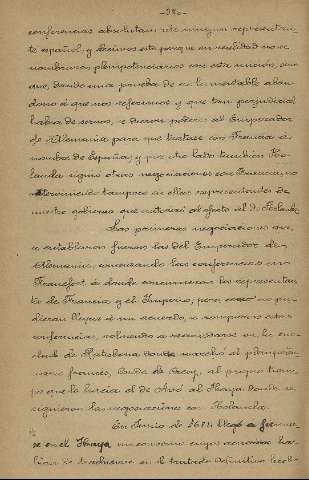 conferencias absolutamente ningun representan-
te español, y decimos esto porque en realidad no se
nombraron plenipotenciarios con esta mision, sino
que, dando una prueba de ese lamentable aban-
dono á que nos referimos y que tan perjudicial
habia de sernos, se dieron poderes al Emperador
de Alemania para que tratase con Francia en
nombre de España; y por otro lado tambien Ho-
landa siguió otras negociaciones con Francia, no
interviniendo tampoco en ellas representantes de
nuestro gobierno que autorizó al efecto al de Holanda.
Las primeras negociaciones que
se entablaron fueron las del Emperador de
Alemania, comenzando las conferencias en
Francfort á donde concurrieron los representan-
tes de Francia y el Imperio; pero como no pu-
dieran llegar á un acuerdo, se rompieron estas
conferencias, volviendo á reanudarse en la ciu-
dad de Ratisbona donde marchó el plenipoten-
ciario frances, Conde de Crecy, al propio tiem-
po que lo hacia el de Avó al Haya donde se
siguieron las negociaciones con Holanda.
En Junio de 1684 llegó á firmar-
se en el Haya un convenio cuyos acuerdos ha-
bian de traducirse en el tratado definitivo